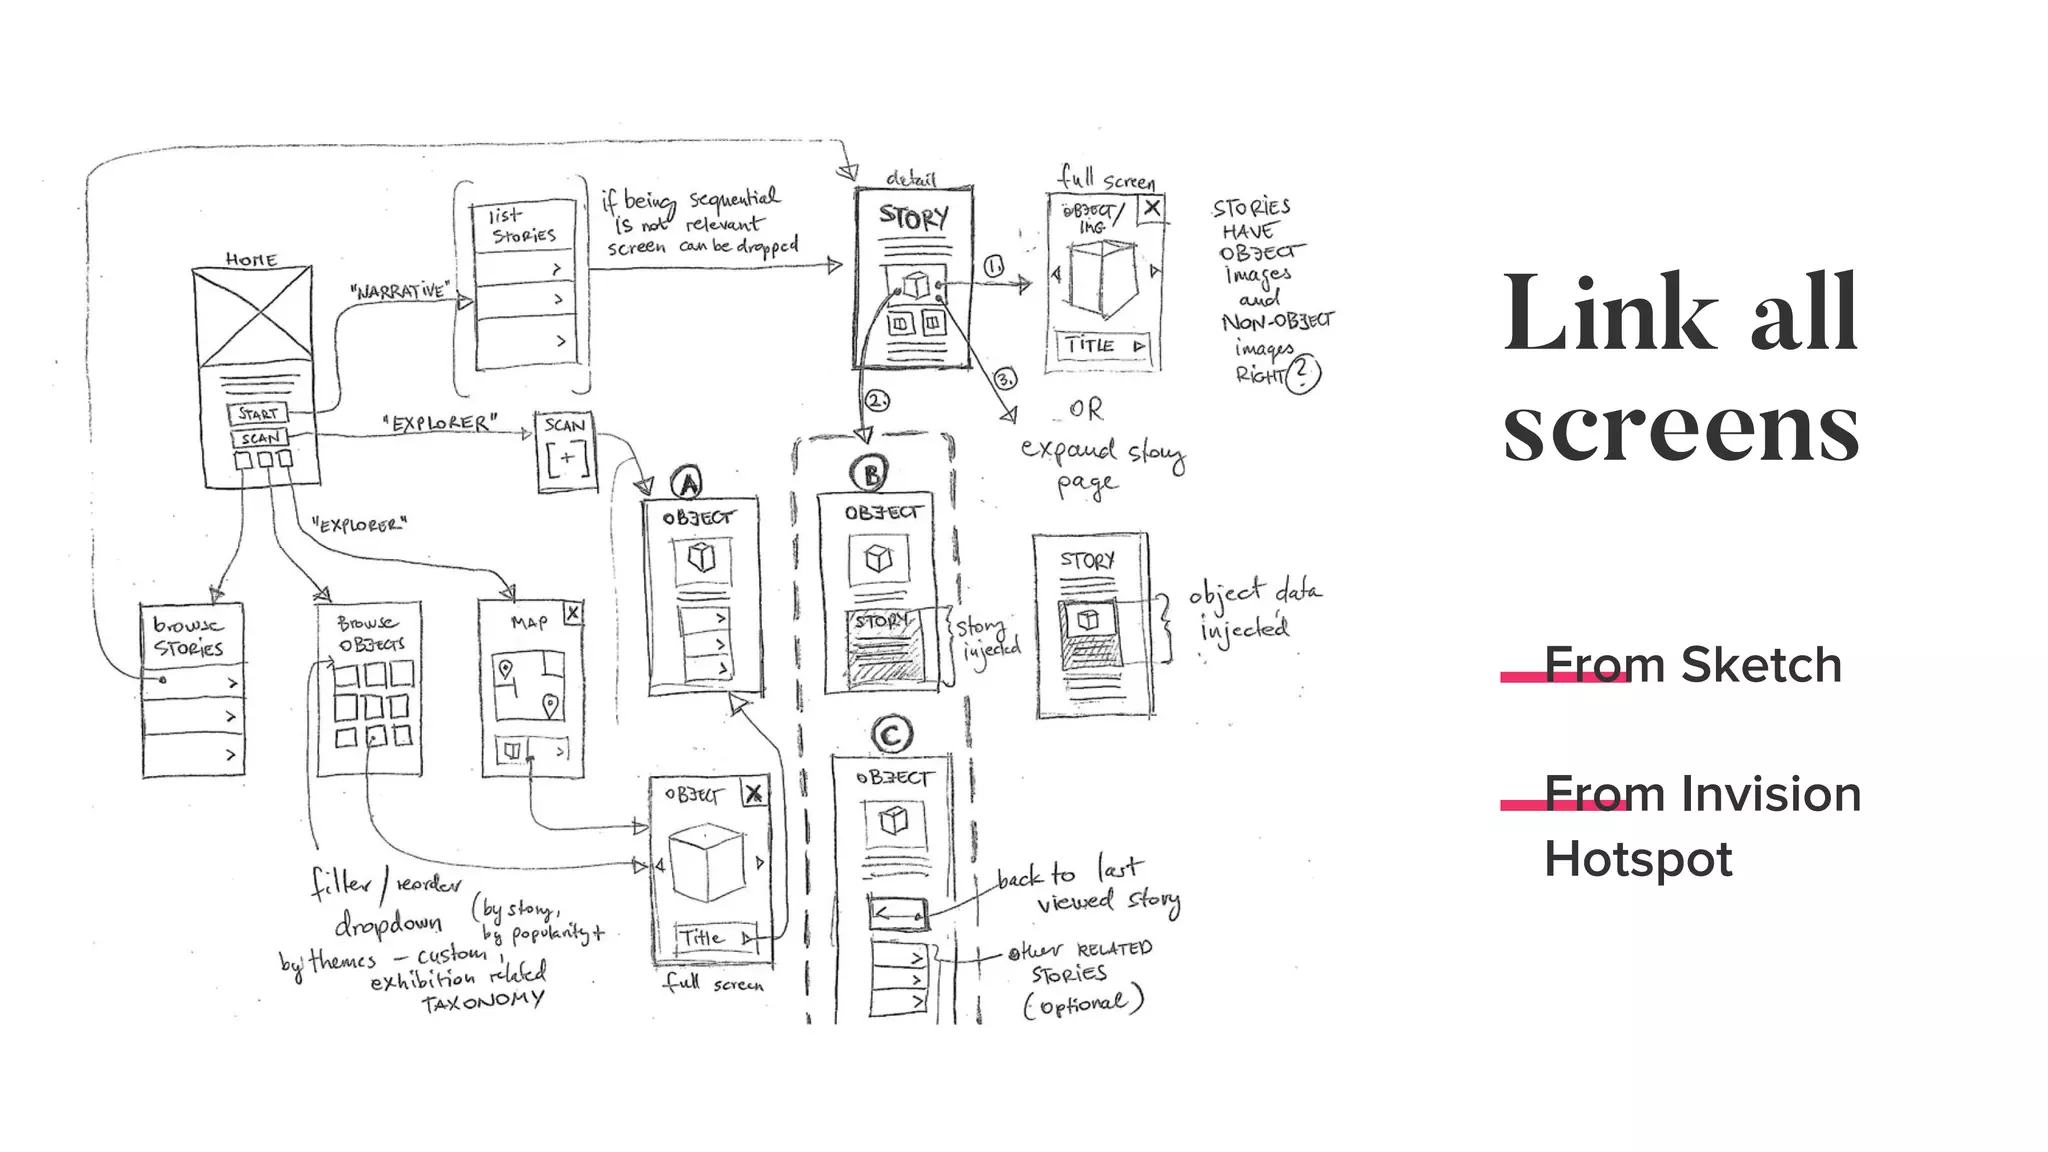 detail
full screen
list
STORIES
if being sequential
is not relevant
screen can be dropped
STORY
OBJECT/
IMG
X
TITLE
STORIES
HAVE
OBJECT
images
and
NON-OBJECT
images
RIGHT ?
HOME
"NARRATIVE"
1.
2.
3.
START
SCAN
"EXPLORER"
SCAN
[+]
OR
expand story
page
"EXPLORER"
A
OBJECT
B
OBJECT
STORY
story
injected
STORY
object data
injected
browse
STORIES
Browse
OBJECTS
MAP
X
C
OBJECT
back to last
viewed story
other RELATED
STORIES
(optional)
OBJECT
X
Title
full screen
filter/reorder
dropdown
(by story,
by popularity +
by themes - custom,
exhibition related
TAXONOMY
Link all
screens
From Sketch
From Invision
Hotspot